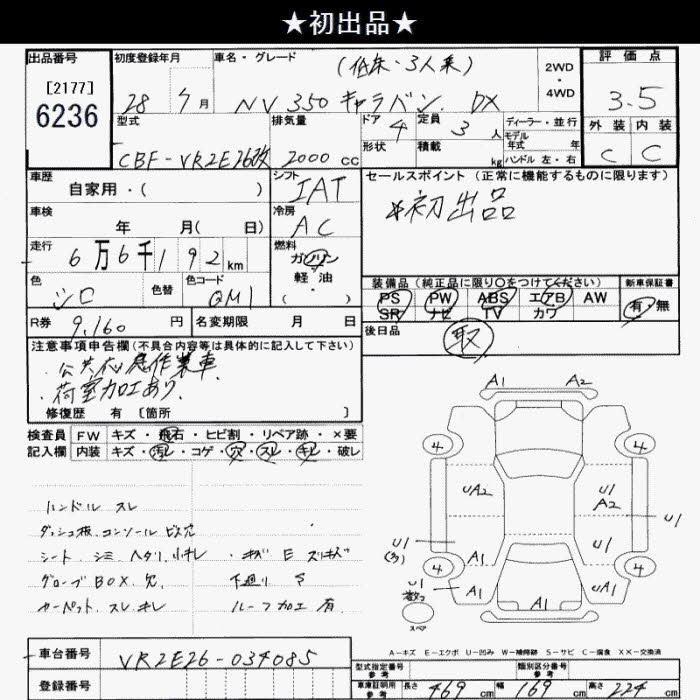 ★初出品★
出品番号
[2177]
6236
初度登録年月
28年 7月
車名・グレード
(低床・3人乗)
NV350 キャラバン DX
2WD
・
4WD
評価点
3.5
外装 内装
C C
型式
CBF-VR2E26改
排気量
2000 cc
ドア 4
形状
定員 3 人
積載 kg
ディーラー・並行
モデル
年式 年
ハンドル 左・右
車歴
自家用・( )
シフト
IAT
セールスポイント(正常に機能するものに限ります)
*初出品
車検
年 月( 日)
冷房
AC
走行
6万6千192km
燃料
ガソリン
軽・油
( )
色
シロ
色替
色コード
QM1
装備品(純正品に限り○をつけてください)
PS PW ABS エアB AW
SR ナビ TV カワ
新車保証書
有・無
R券 9,160 円
名変期限 月 日
後日品
取
注意事項申告欄(不具合内容等は具体的に記入して下さい)
・荷室加工あり
修復歴 有 [箇所 ]
検査員 FW キズ・飛石・ヒビ割・リペア跡・×要
記入欄 内装 キズ・汚レ・コゲ・穴・スレ・キレ・破レ
ハンドル スレ
ダッシュ板、コンソール ビス穴
シート、シミ、ヘタリ、小キレ
グローブBOX、穴
カーペット、スレ、キレ
・キズ E スリキズ
下廻り サ
ルーフ加工 有
A1 A2
4 4
UA2
U1
A2
U1
U1
(3)
A1 A1
4 4
U1
A1
A1
UA1
スペア
A-キズ E-エクボ U-凹み W-補修跡 S-サビ C-腐食 XX-交換済
車台番号 VR2E26-034085
登録番号
型式指定番号
参考
類別区分番号
参考
車庫証明用
参考
長さ 469 cm 幅 169 cm 高さ 224 cm